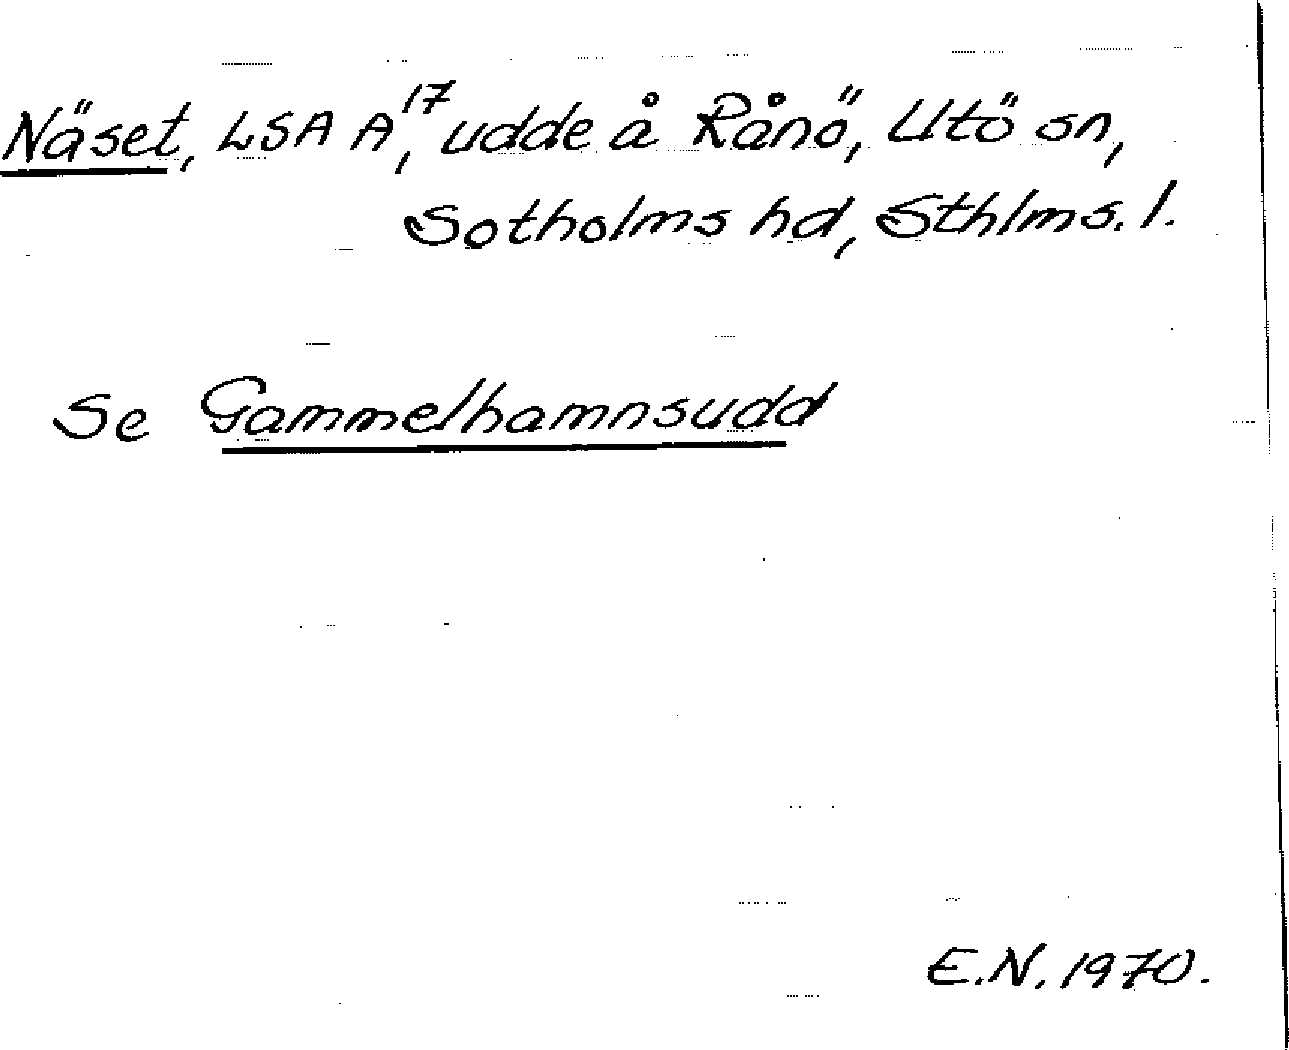 Näset, LSA A¹⁷, udde å Rånö, Utö sn,
Sotholms hd, Sthlms. l.
Se Gammelhamnsudd
E.N. 1970.